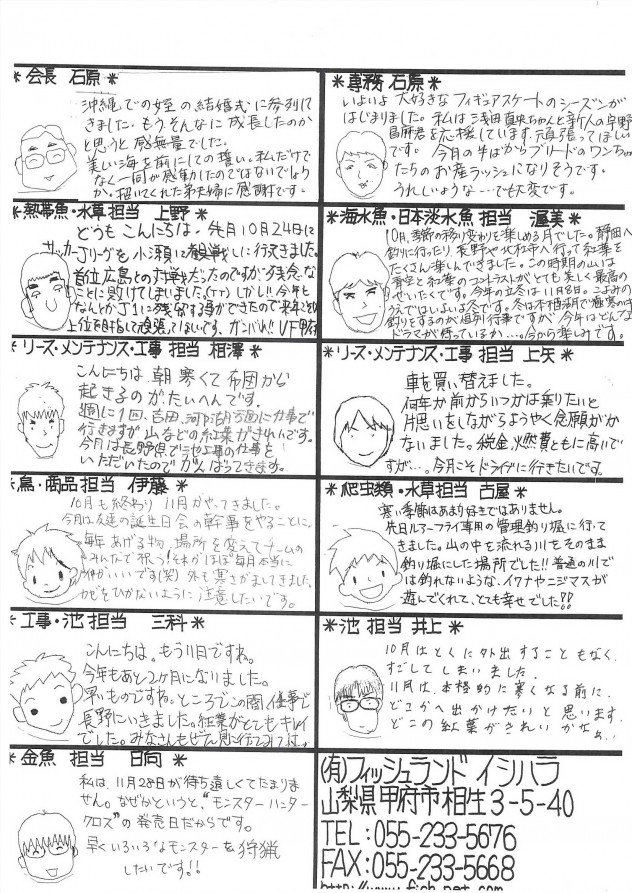 *会長 石原*
沖縄での姪の結婚式に参列して
きました。もうそんなに成長したのか
と思うと感無量でした。
美しい海を前にしての誓い。私だけで
なく一同が感動したのではないでしょう
か。招いてくれた弟夫婦に感謝です。
*専務 石原*
いよいよ大好きなフィギュアスケートのシーズンが
はじまりました。私は浅田真央ちゃんと新人の宇野
昌麻君を応援しています。頑張ってほしい
です。今月の半ばからブリードのワンちゃん
たちのお産ラッシュになりそうです。
うれしいような…でも大変です。
*熱帯魚・水草担当 上野*
どうもこんにちは。先月10月24日に
サッカーJリーグを小瀬に観戦しに行ってきました。
首位広島との対戦だったのですが残念な
ことに敗けてしまいました。(TT) しかし!! 今年も
なんとかJ1に残留する事ができたので来年こそ
上位を目指して頑張ってほしいです。ガンバレ!! VF甲府
*海水魚・日本淡水魚 担当 渥美*
10月、季節の移り変わりを楽しめる月でした。静岡へ
釣りに行ったり、長野や大北市へ行って紅葉を
たくさん楽しんできました。この時期の山は
青空と紅葉のコントラストがとても美しく最高の
ぜいたくです。今年の立冬は11月8日。こよみの
うえではいよいよ冬です。冬は本栖湖で極寒の中
釣りをするのが恒例行事ですが、今年はどんな
ドラマが待っているか…。今から楽しみです。
*リース・メンテナンス・工事 担当 相澤*
こんにちは。朝寒くて布団から
起きるのがたいへんです。
週に1回、吉田、河口湖方面に仕事で
行きますが山などの紅葉がきれいです。
今月は長野県で池工事の仕事を
いただいたのでがんばってきます。
*リース・メンテナンス・工事 担当 上矢*
車を買い替えました。
何年か前からいつかは乗りたいと
片思いをしながらようやく念願がか
ないました。税金、燃費ともに高いで
すが…。今月こそドライブに行きたいです。
*鳥・商品担当 伊藤*
10月も終わり 11月がやってきました。
今月は友達の誕生日会の幹事をやることに。
毎年あげる物、場所を変えてチームの
みんなで祝う!それがほぼ毎月本当に
仲がいいです(笑) 外も寒さがましてきました。
カゼをひかないように注意したいです。
*爬虫類・水草担当 古屋*
寒い季節はあまり好きではありません。
先日ルアーフライ専用の管理釣り堀に行って
きました。山の中を流れる川をそのまま
釣り堀にした場所でした!! 普通の川で
は釣れないような、イワナやニジマスが
遊んでくれて、とても幸せでした!!
*工事・池 担当 三科*
こんにちは。もう11月ですね。
今年もあと2ヶ月になりました。
早いものですね。ところでこの間、仕事で
長野にいきました。紅葉がとてもキレイ
でした。みなさんもぜひ見に行ってみては。
*池 担当 井上*
10月はとくに外出することもなく、
すごしてしまいました。
11月は、本格的に寒くなる前に、
どこかへ出かけたいと思います。
どこの紅葉がきれいかなぁ。
*金魚 担当 日向*
私は、11月28日が待ち遠しくてたまりま
せん。なぜかというと、“モンスターハンター
クロス”の発売日だからです。
早くいろいろなモンスターを狩猟
したいです!!
(有)フィッシュランド イシハラ
山梨県甲府市相生3-5-40
TEL:055-233-5676
FAX:055-233-5668